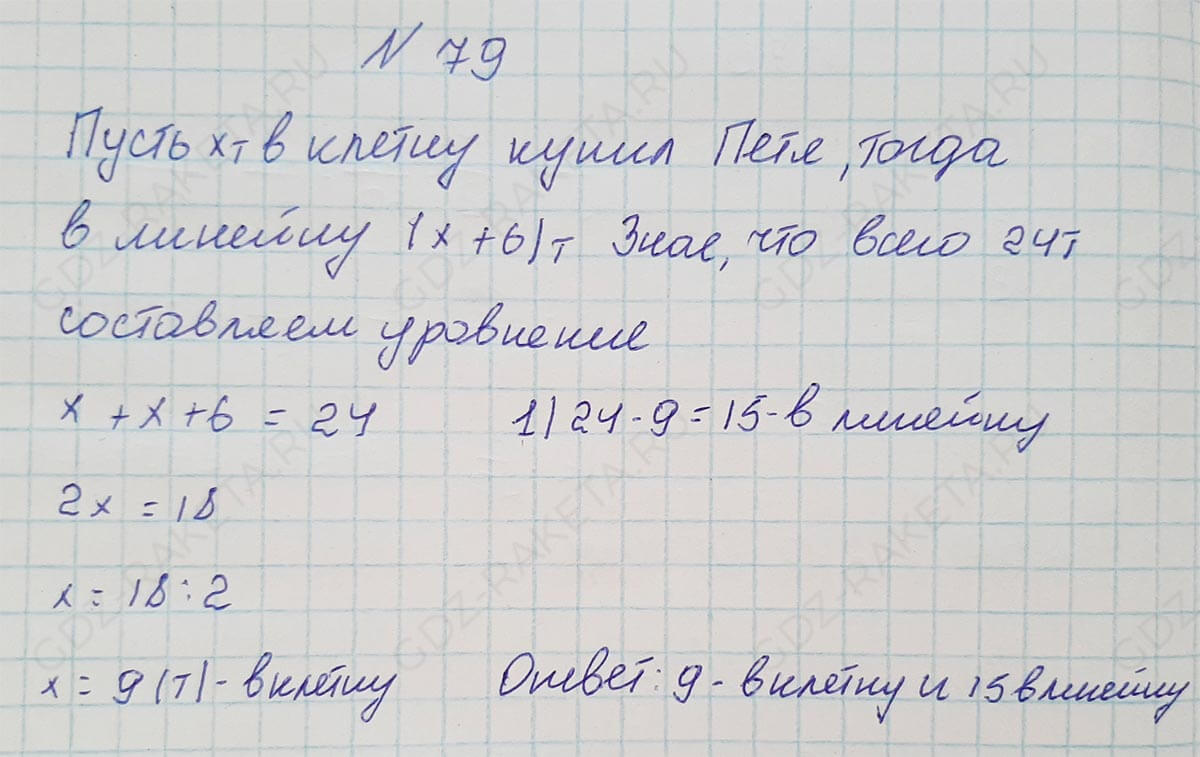 N 79
Пусть хт в клетку купил Петя, тогда
в линейку (х+6)т Зная, что всего 24т
составляем уровнение
х + х + 6 = 24
1) 24 - 9 = 15 - в линейку
2х = 18
х = 18 : 2
х = 9 (т) - в клетку
Ответ: 9 - в клетку и 15 в линейку
GDZ-RAKETA.RU